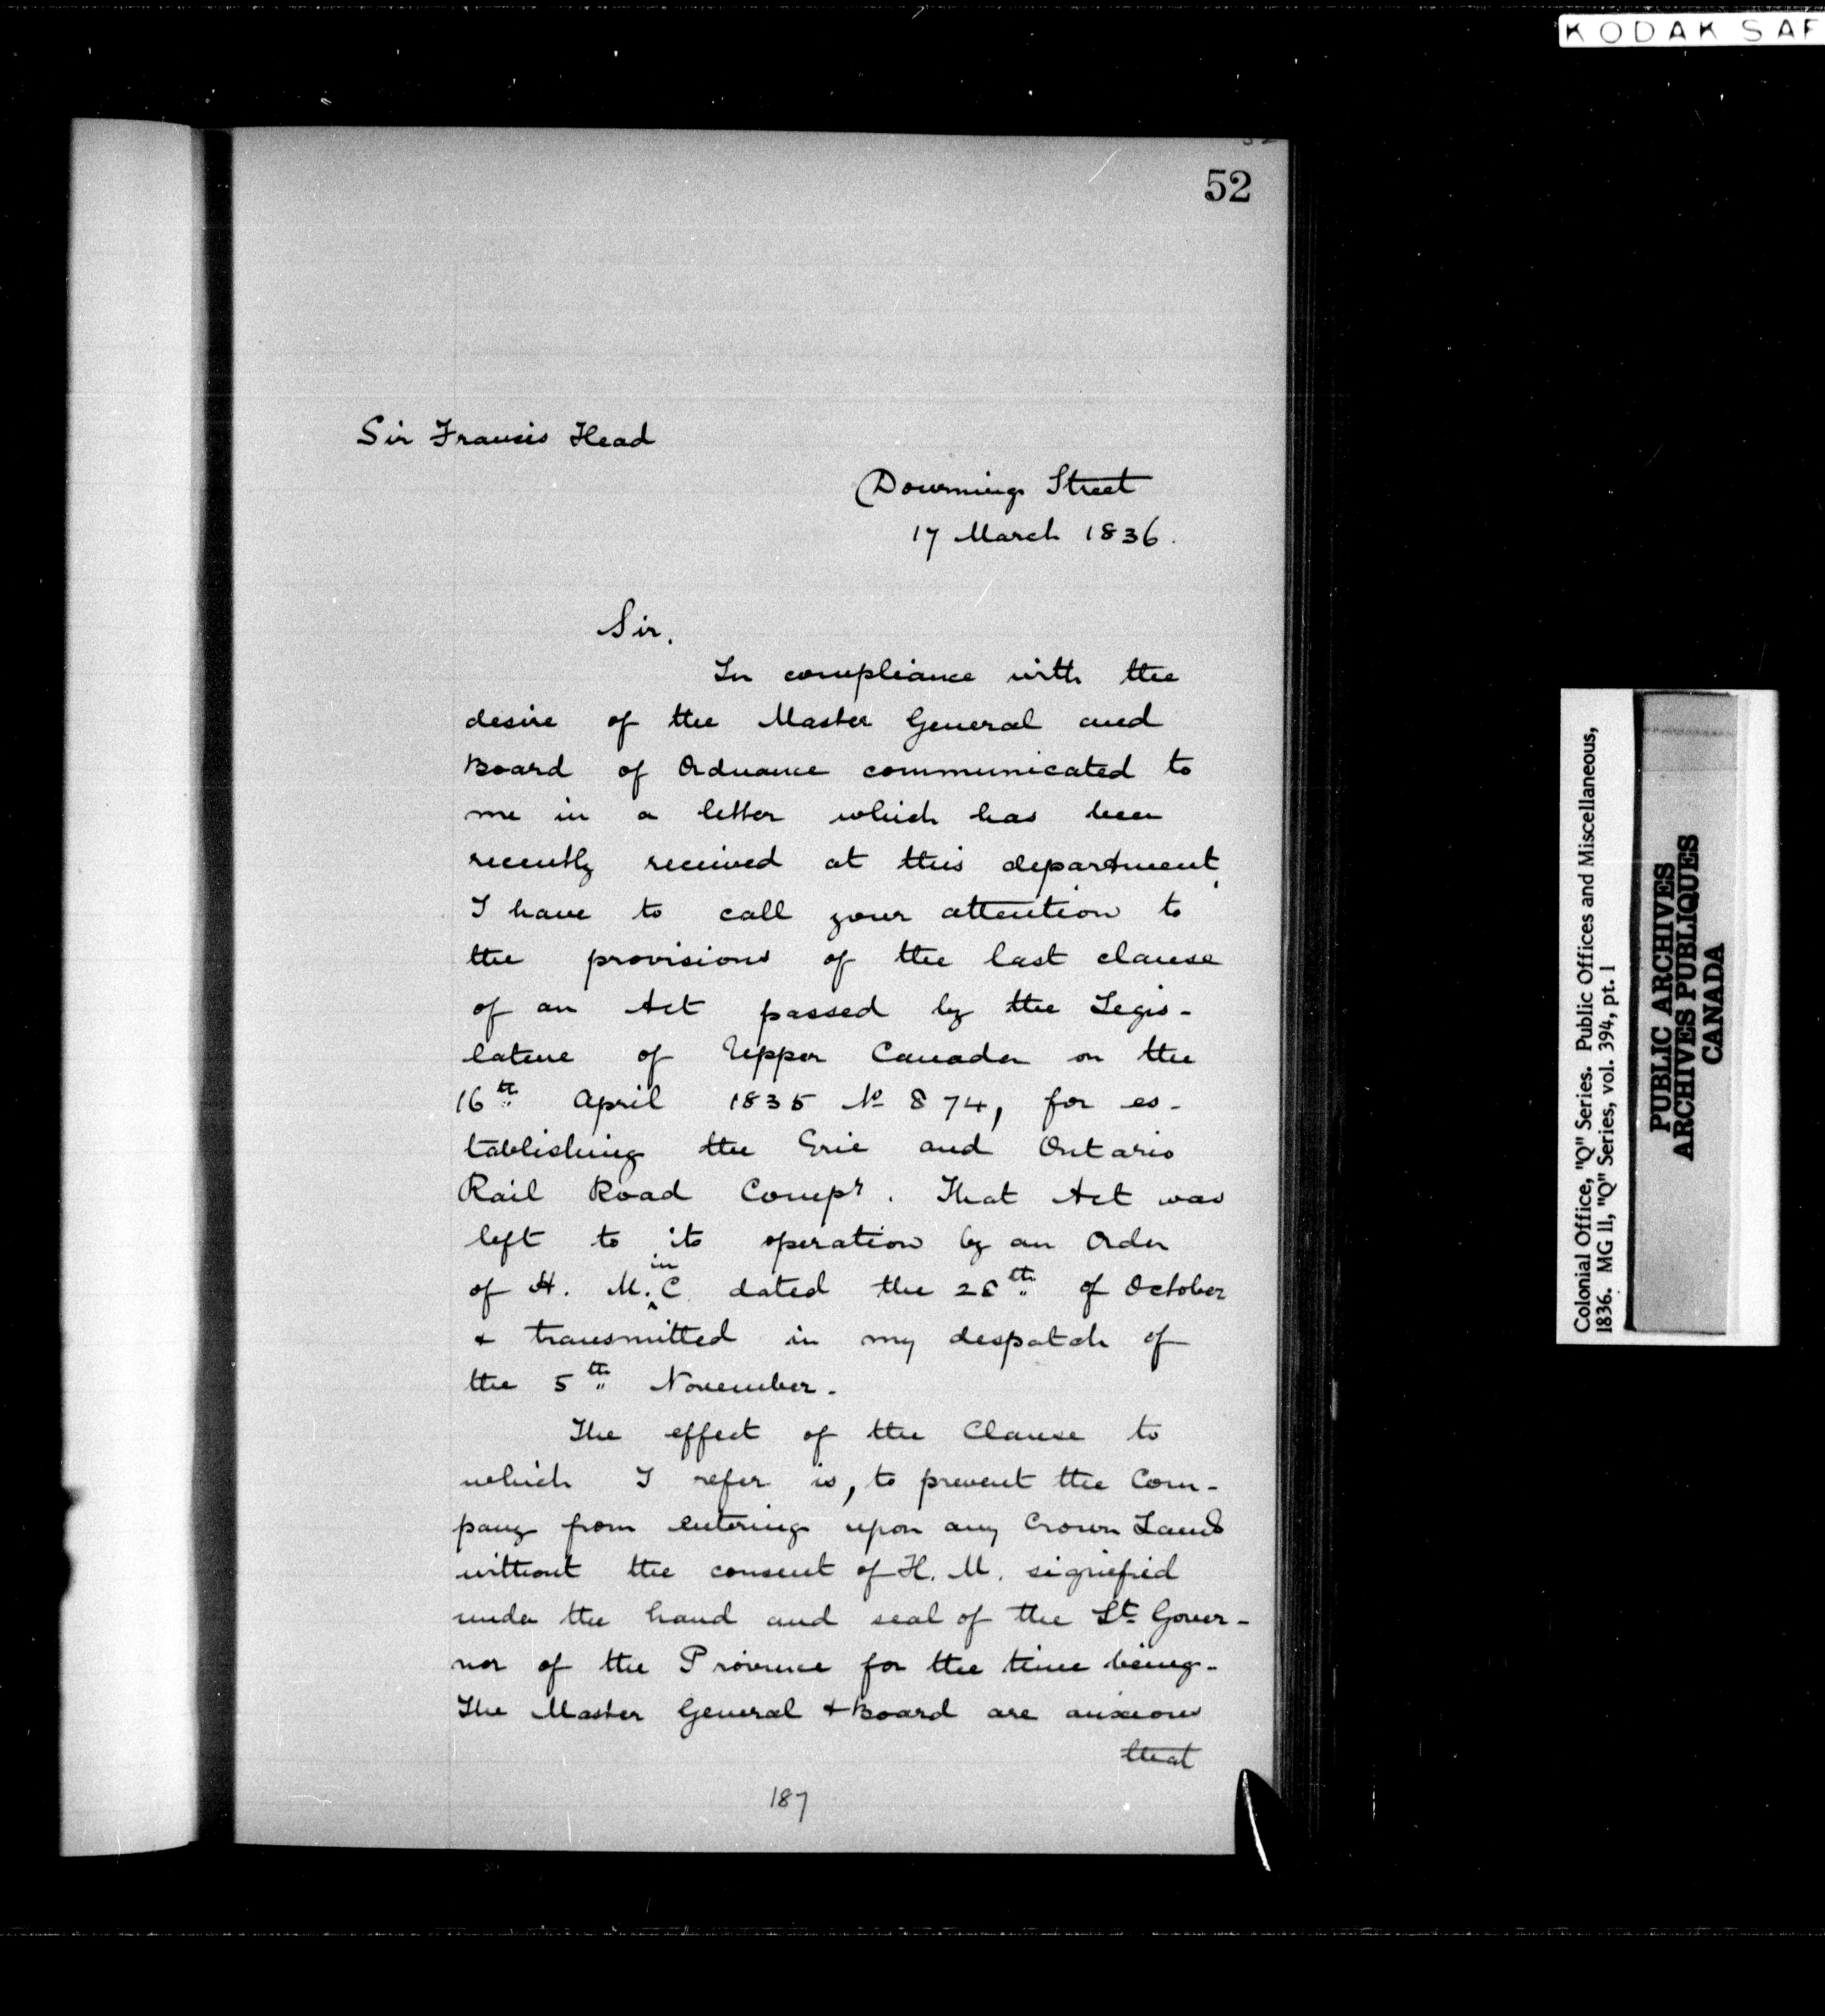 KODAK SAF
52
Sir Francis Head
Downing Street
17 March 1836.
Sir.
In compliance with the
desire of the Master General and
Board of Ordnance communicated to
me in a letter which has been
recently received at this department,
I have to call your attention to
the provisions of the last clause
of an Act passed by the Legis-
lature of Upper Canada on the
16th April 1835 No 874, for es-
tablishing the Erie and Ontario
Rail Road Compy. That Act was
left to its operation by an Order
of H. M. in C. dated the 28th of October
& transmitted in my despatch of
the 5th November.
The effect of the Clause to
which I refer is, to prevent the Com-
pany from entering upon any Crown Lands
without the consent of H. M. signified
under the hand and seal of the Lt Gover-
nor of the Province for the time being.
The Master General & Board are anxious
that
187
Colonial Office, "Q" Series. Public Offices and Miscellaneous,
1836. MG 11, "Q" Series, vol. 394, pt. 1
PUBLIC ARCHIVES
ARCHIVES PUBLIQUES
CANADA